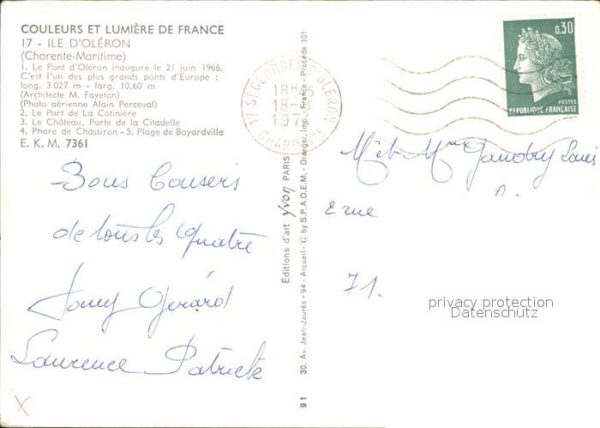 COULEURS ET LUMIÈRE DE FRANCE
17 - ILE D'OLÉRON
(Charente-Maritime)
1. Le Pont d'Oléron inauguré le 21 juin 1966,
C'est l'un des plus grands ponts d'Europe :
long. 3 027 m - larg. 10,60 m
(Architecte M. Fayeton)
(Photo aérienne Alain Perceval)
2. Le Port de La Cotinière
3. Le Château, Porte de la Citadelle
4. Phare de Chassiron - 5. Plage de Boyardville
E. K. M. 7361
Bons Baisers
de tous les quatre
Gérard
Laurence Patrick
X
Editions d'art yvon PARIS
30, Av. Jean-Jaurès - 94 - Arcueil - © by S.P.A.D.E.M. - Draeger, Imp. - France - Procédé 101
91
17 ST GEORGES D'OLERON
18
18
0,30
POSTES
REPUBLIQUE FRANÇAISE
M et Mme Gaudry Louis
rue
71.
privacy protection
Datenschutz